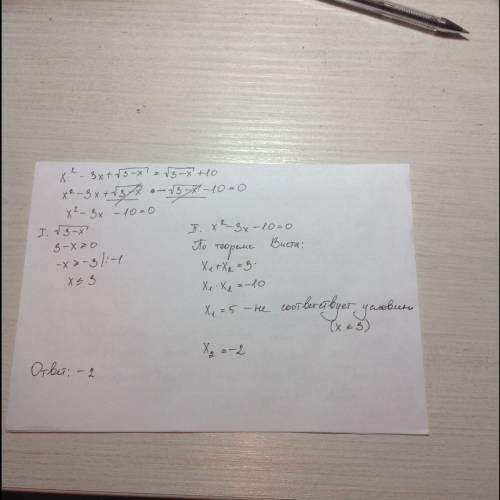 x² - 3x + √3-x = √3-x + 10
x² - 3x + √3-x - √3-x - 10 = 0
x² - 3x - 10 = 0
I. √3-x
3-x ≥ 0
-x ≥ -3 |: -1
x ≤ 3
II. x² - 3x - 10 = 0
По теореме Виета:
x₁ + x₂ = 3
x₁ · x₂ = -10
x₁ = 5 - не соответствует условию
(x ≤ 3)
x₂ = -2
Ответ: -2